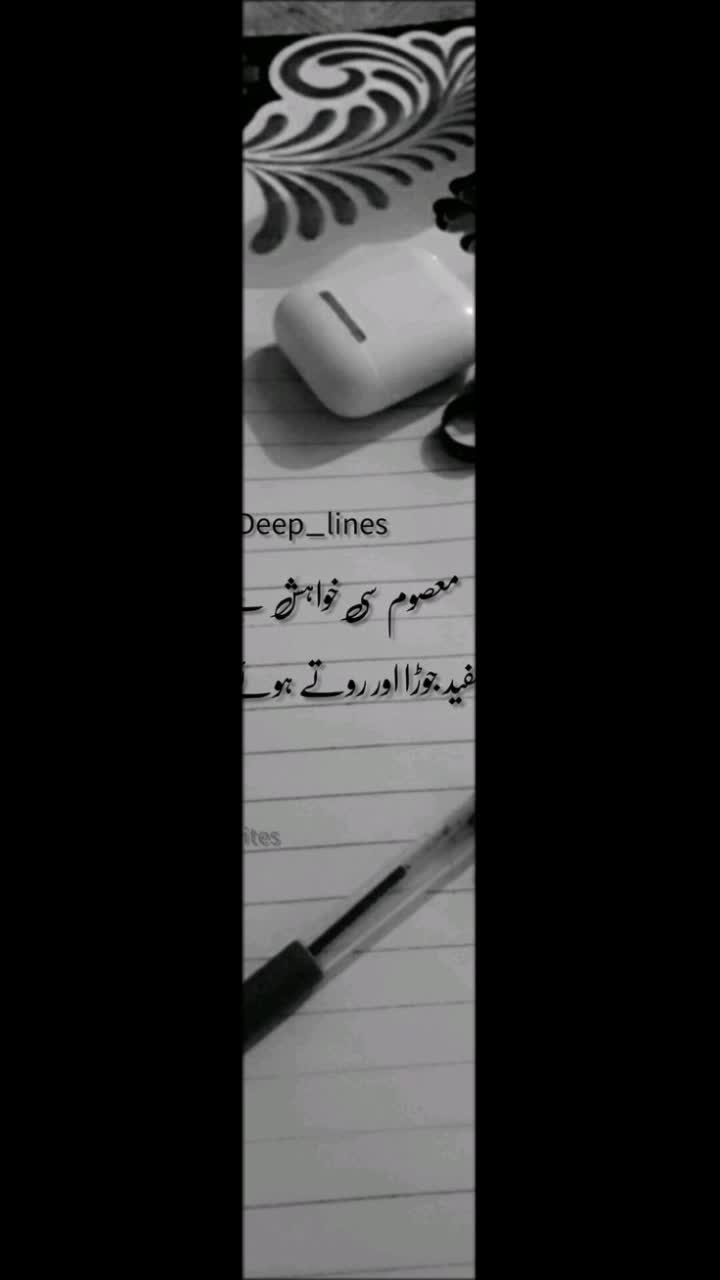 Deep_lines
معصوم سی خواہش
جوڑا اور روتے
ites